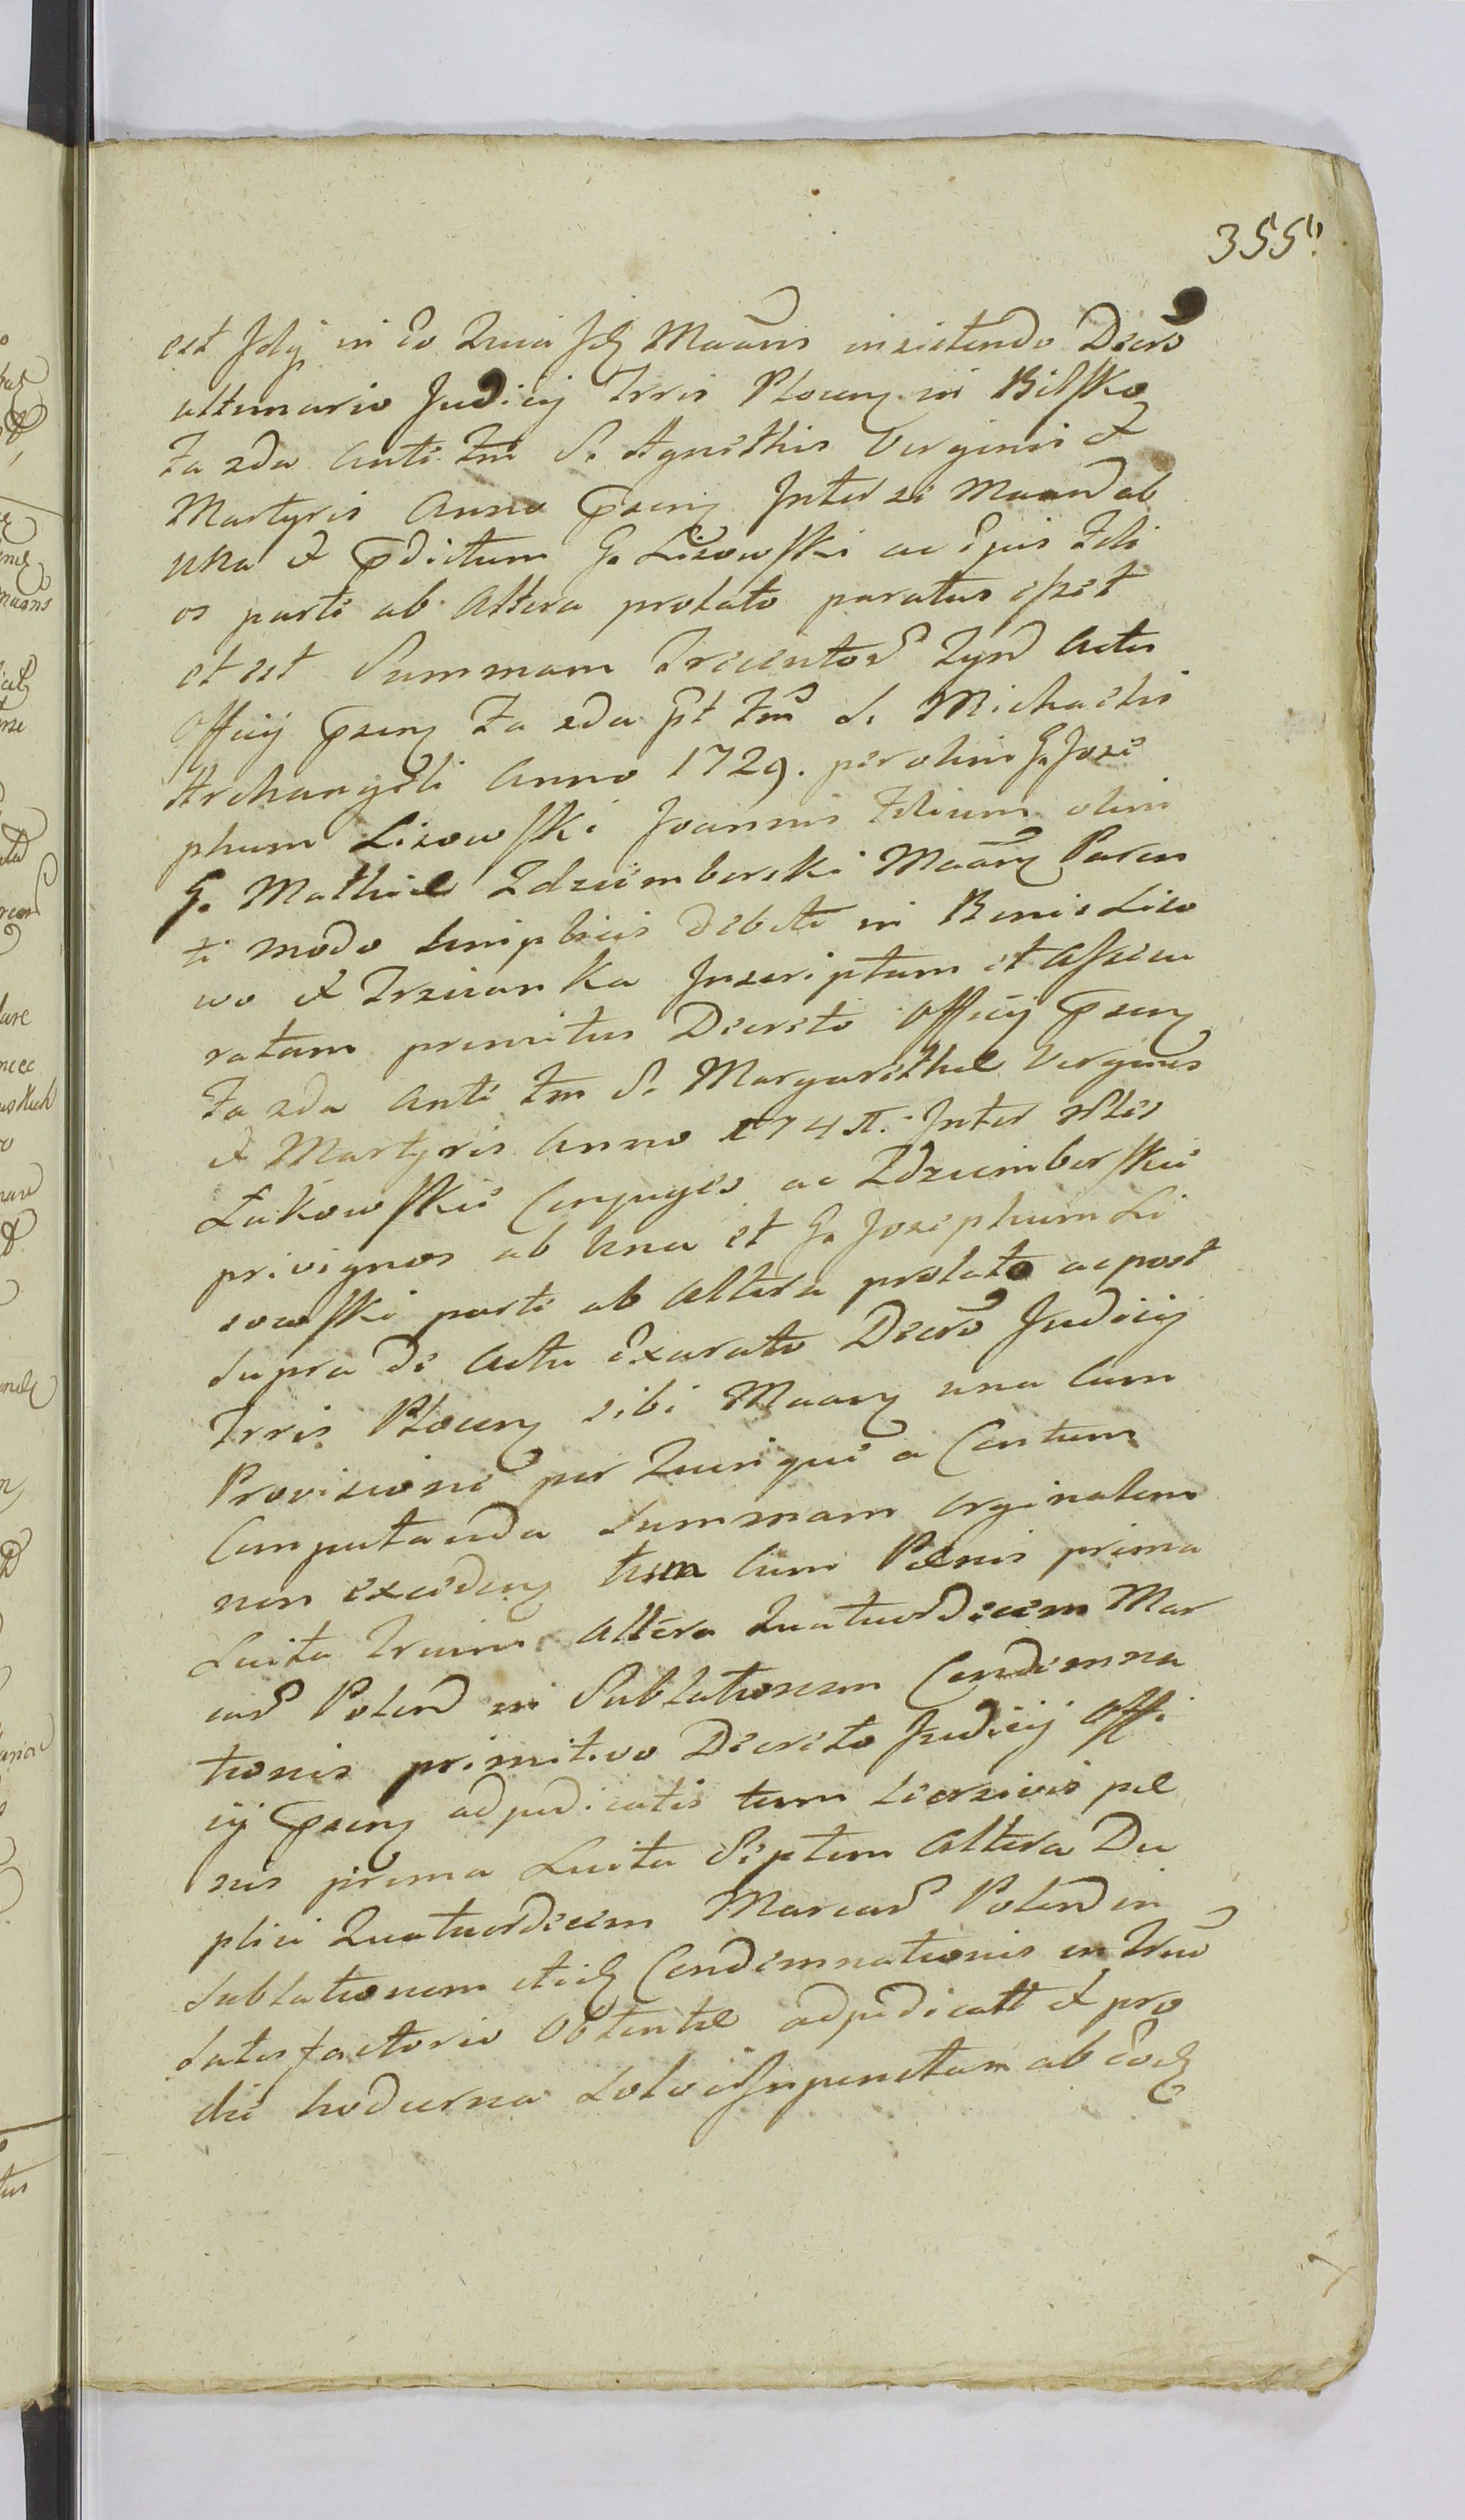 355
est Jdq in Eo Quia Jdq Maãns insistendo Decro
ultimario Judicij Trris Plocen in Bilsko
Fa 2da Ante Fm S. Agnethis Virginis et
Martyris Anno Psenti Inter se Maand ab
una et Pdictum G. Lisowski ac Ejus Fili
os parte ab Altera prolato paratus esset
et est Summam Trecentor Zynd Actis
Officij Psenti Fa 2da pt Fm S. Michaelis
Archangeli Anno 1729. per olim G. Jose
phum Lisowski Joannis Filium olim
G. Mathiæ Zdziemborski Maãn Paren
ti modo simplicis debiti in Bonis Liso
wo et Trzcianka Inscriptam et Assecu
ratam primitus Decreto Officij Psen
Fa 2da Ante Fm S. Margarethæ Virginis
et Martyris Anno Inter Nles
Łukowskie Conjuges ac Zdziemborskie
privignos ab Una et G. Josephum Li
sowski parte ab Altera prolato ac post
supra de Actu Exarato Decro Judicij
Trris Plocen sibi Maan una Cum
Provisione per Quinque a Centum
Computanda Summam orginalem
non exceden tum Cum Pænis prima
Luita Trium Altera Quatuordecim Mar
car Polend in Sublationem Condemna
tionis primitivo Decreto Judicij Offi
cij Psen adjudicatis tum pæ
nis prima Luita Septem Altera Du
plici Quatuordecim Marcar Polend in
Sublationem itidq Condemnationis in Trno
Satisfactorio Obtentæ adjudicatt et pro
die hodierna ab Eodq